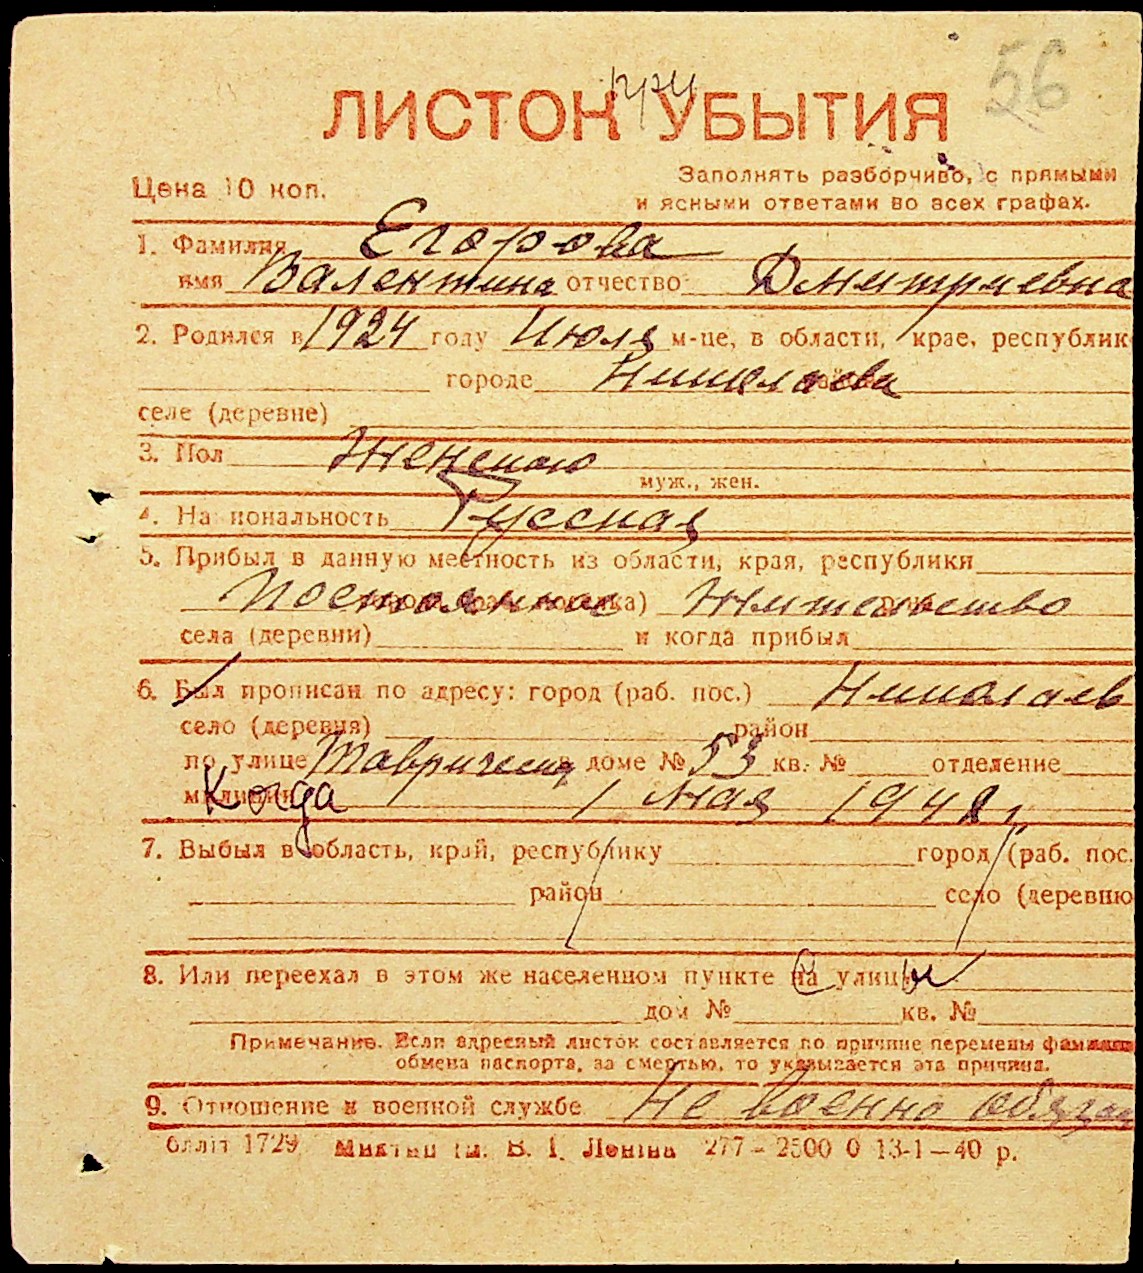 56
ЛИСТОК при УБЫТИЯ
Цена 10 коп.
Заполнять разборчиво, с прямыми
и ясными ответами во всех графах.
1. Фамилия Егорова
имя Валентина отчество Дмитриевна
2. Родился в 1924 году Июля м-це, в области, крае, республик
городе Николаева
селе (деревне)
3. Пол Женского
муж., жен.
4. Национальность Русская
5. Прибыл в данную местность из области, края, республики
Постоянное Жительство
села (деревни) и когда прибыл
6. Был прописан по адресу: город (раб. пос.) Николаев
село (деревня) район
по улице Таврическая доме № 53 кв. № отделение
милиции Когда 1 Мая 1942 г
7. Выбыл в область, край, республику город (раб. пос.
район село (деревню
8. Или переехал в этом же населенном пункте на улицы
дом № кв. №
Примечание. Если адресный листок составляется по причине перемены фамилии
обмена паспорта, за смертью, то указывается эта причина.
9. Отношение к военной службе Не военно обязан
Оллiт 1729 Миктип iм. В. I. Ленiна 277 – 2500 0 13-1—40 р.